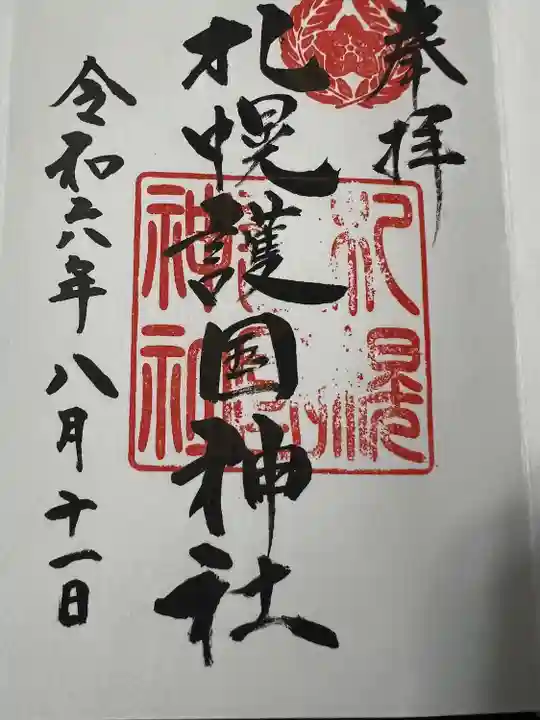 奉拝
札幌護国神社
令和六年八月十一日
札幌
護国
神社